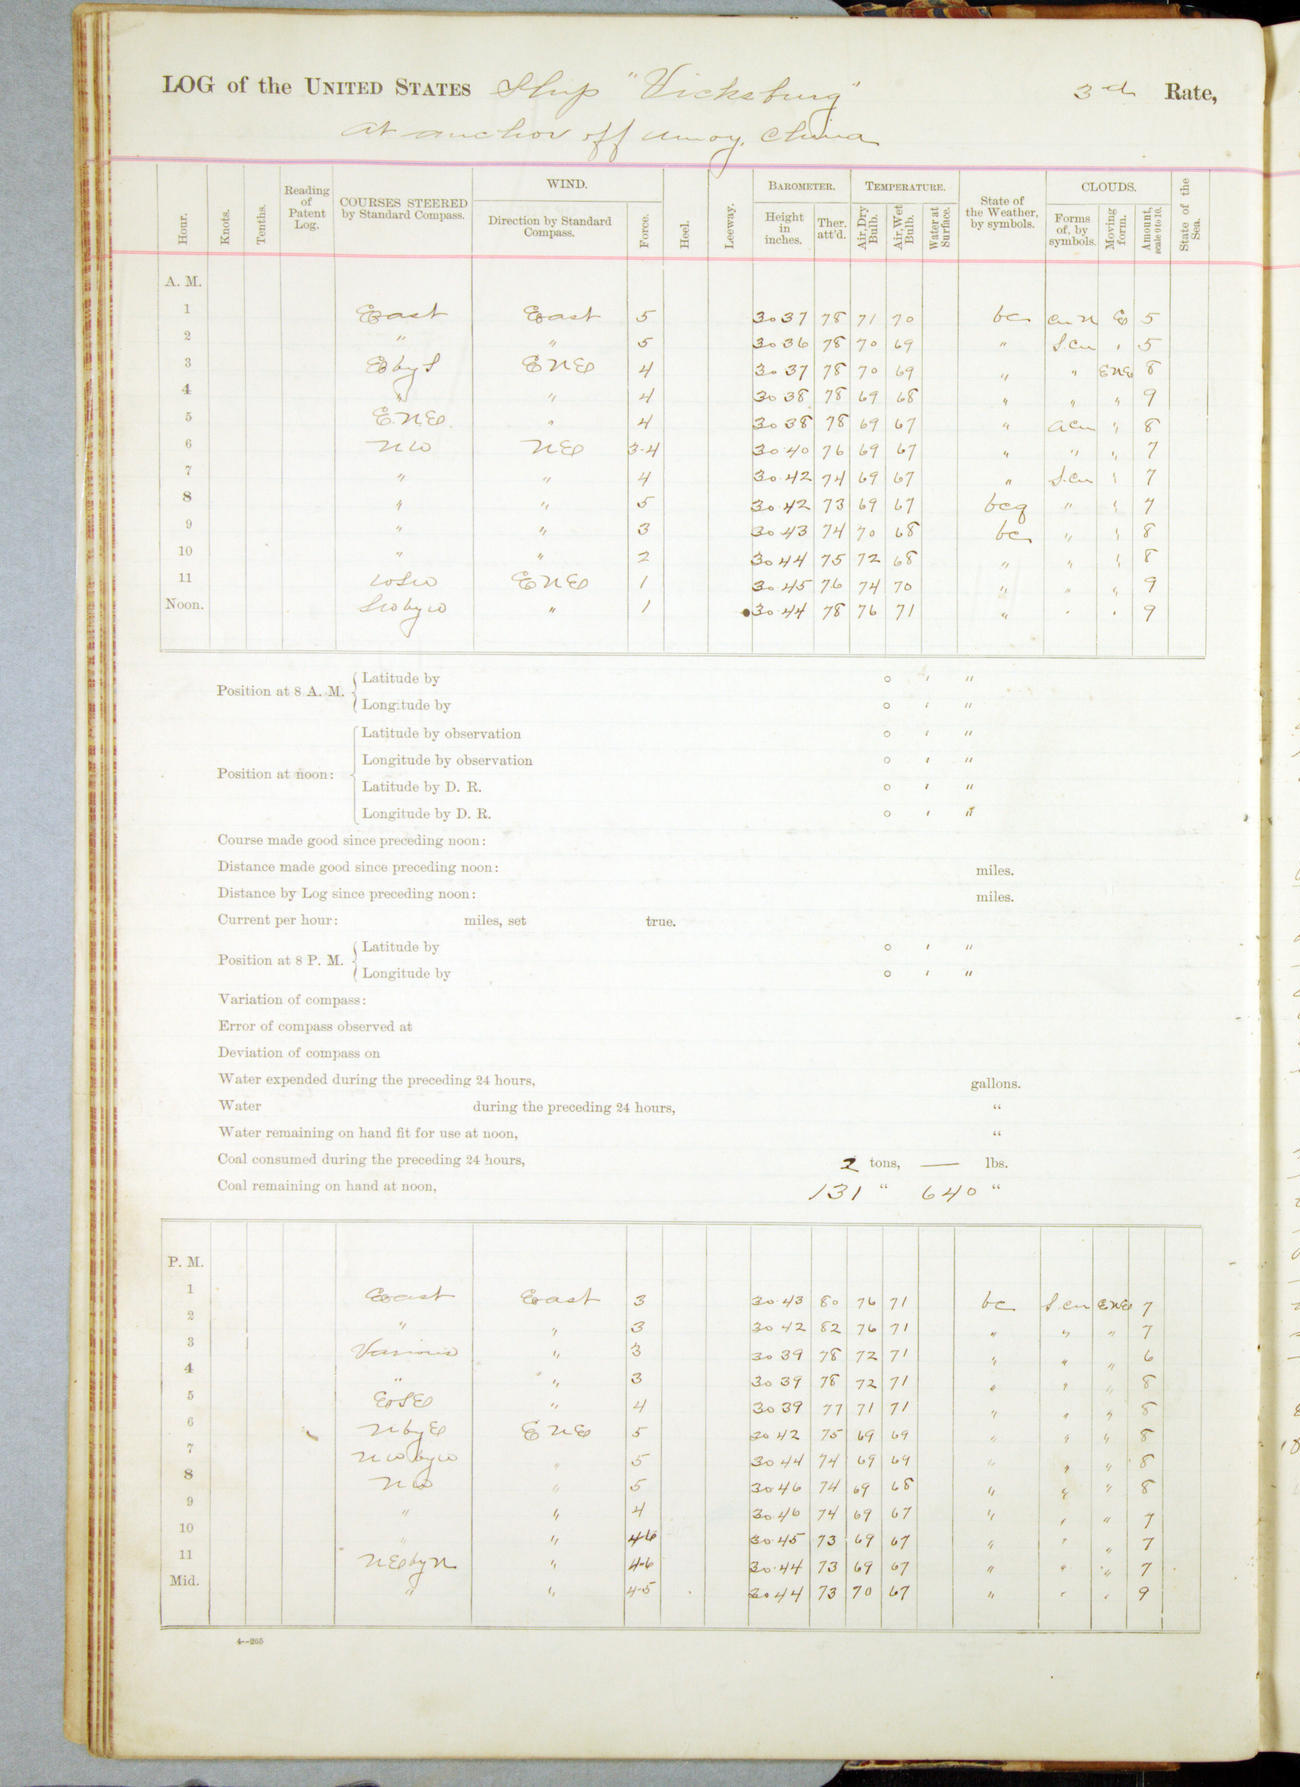 LOG of the UNITED STATES Ship "Vicksburg" 3rd Rate,
at anchor off Amoy, China
Hour. Knots. Tenths. Reading of Patent Log. COURSES STEERED by Standard Compass. WIND. Direction by Standard Compass. Force. Heel. Leeway. BAROMETER. Height in inches. Ther. att'd. TEMPERATURE. Air, Dry Bulb. Air, Wet Bulb. Water at Surface. State of the Weather, by symbols. CLOUDS. Forms of, by symbols. Moving form. Amount, scale 0 to 10. State of the Sea.
A. M.
1 East East 5 30 37 78 71 70 bc cu n E 5
2 " " 5 30 36 78 70 69 " S.cu " 5
3 E by S ENE 4 30 37 78 70 69 " " ENE 8
4 " " 4 30 38 78 69 68 " " " 9
5 E.N.E. " 4 30 38 78 69 67 " a cu " 8
6 NW NE 3-4 30 40 76 69 67 " " " 7
7 " " 4 30 42 74 69 67 " S.cu " 7
8 " " 5 30 42 73 69 67 bcq " " 7
9 " " 3 30 43 74 70 68 bc " " 8
10 " " 2 30 44 75 72 68 " " " 8
11 WSW ENE 1 30 45 76 74 70 " " " 9
Noon. SW by W " 1 30 44 78 76 71 " " " 9
Position at 8 A. M. { Latitude by ° ' "
Longitude by ° ' "
Latitude by observation ° ' "
Longitude by observation ° ' "
Position at noon: Latitude by D. R. ° ' "
Longitude by D. R. ° ' "
Course made good since preceding noon:
Distance made good since preceding noon: miles.
Distance by Log since preceding noon: miles.
Current per hour: miles, set true.
Position at 8 P. M. { Latitude by ° ' "
Longitude by ° ' "
Variation of compass:
Error of compass observed at
Deviation of compass on
Water expended during the preceding 24 hours, gallons.
Water during the preceding 24 hours, "
Water remaining on hand fit for use at noon, "
Coal consumed during the preceding 24 hours, 2 tons, — lbs.
Coal remaining on hand at noon, 131 " 640 "
P. M.
1 East East 3 30 43 80 76 71 bc S cu ENE 7
2 " " 3 30 42 82 76 71 " " " 7
3 Various " 3 30 39 78 72 71 " " " 6
4 " " 3 30 39 78 72 71 " " " 8
5 ESE " 4 30 39 77 71 71 " " " 8
6 N by E ENE 5 30 42 75 69 69 " " " 8
7 NW by W " 5 30 44 74 69 69 " " " 8
8 NW " 5 30 46 74 69 68 " " " 8
9 " " 4 30 46 74 69 67 " " " 7
10 " " 4-6 30 45 73 69 67 " " " 7
11 NE by N " 4-6 30 44 73 69 67 " " " 7
Mid. " " 4-5 30 44 73 70 67 " " " 9
4—265